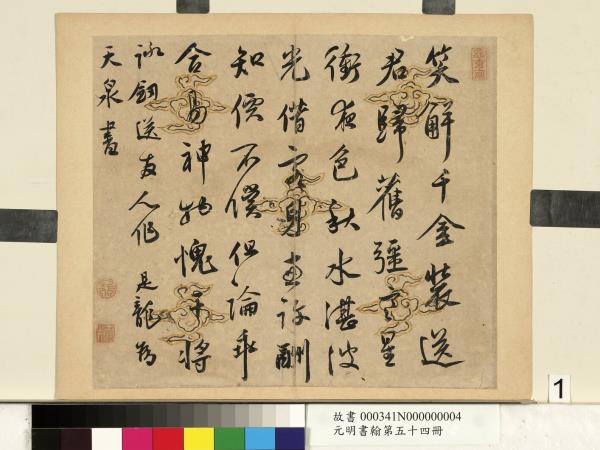 笑解千金裝送
君歸舊疆寒星
衝夜色秋水湛波
光借客身許酬
知價不償但論乖
合易神物愧干將
詠劍送友人作 是龍為
天泉書
1
故書 000341N000000004
元明書翰第五十四冊